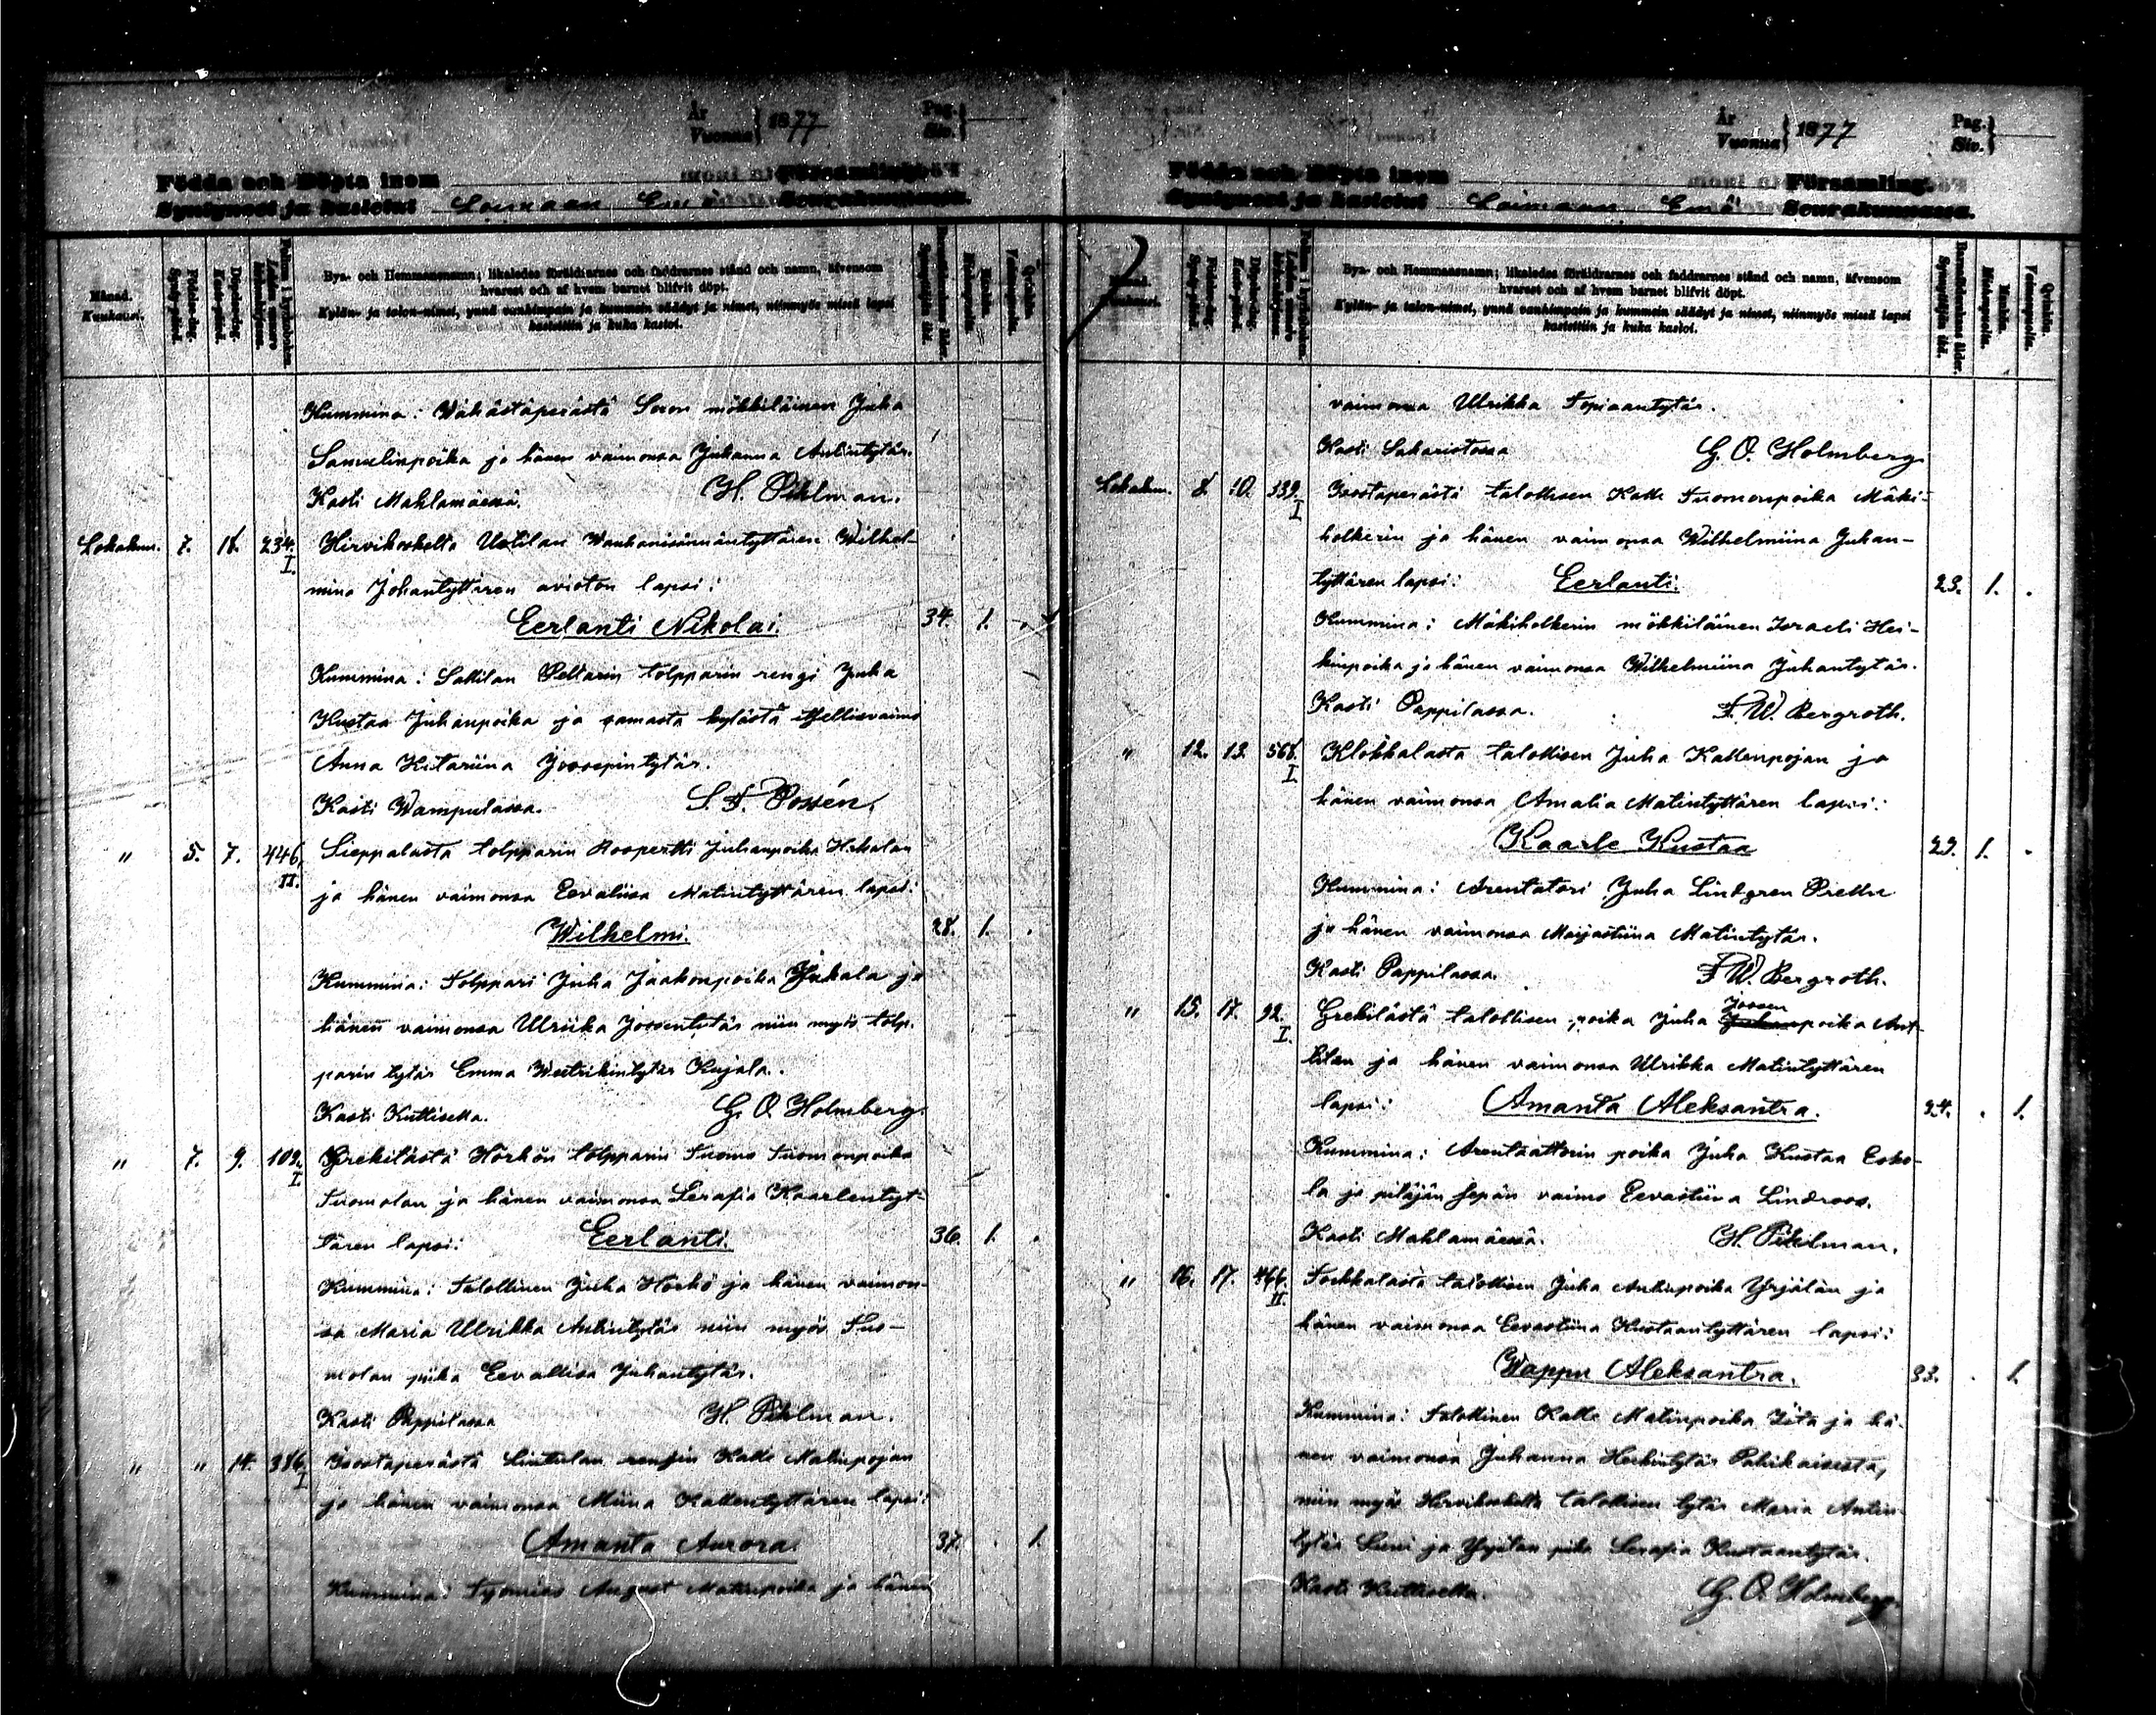 År
Vuonna } 1877
Pag.
Siv. }
Födda och Döpta inom Församling.
Syntyneet ja kastetut Loimaan Emä Seurakunnassa.
Månad.
Kuukausi.
Födelse-dag.
Syntymä-päivä.
Döpelse-dag.
Kaste-päivä.
Bya- och Hemmansnamn; likaledes föräldrarnes och faddrarnes stånd och namn, äfvensom
hvarest och af hvem barnet blifvit döpt.
Kylän- ja talon-nimet, ynnä vanhempain ja kummein säädyt ja nimet, niinmyös missä lapsi
kastettiin ja kuka kastoi.
Barnaföderskans ålder.
Synnyttäjän ikä.
Mankön.
Miehenpuolia.
Qvinkön.
Vaimonpuolia.
Kummina: Vähästäperästä Soron mökkiläinen Juha
Samulinpoika ja hänen vaimonsa Juhanna Antintytär.
Kasti Mahlamäessä. H. Pihlman.
Lokakuu. 7. 18. 234. I. Hirvikoskelta Uotilan Wilhel-
mina Johantyttären avioton lapsi:
Eerlanti Nikolai. 34. 1.
Kummina: Sallilan Peltarin tolpparin rengi Juha
Kustaa Juhanpoika ja samasta kylästä itsellisvaimo
Anna Kitariina Joosepintytär.
Kasti Wampulassa. S. F. Possén.
" 5. 7. 446. II. Sieppalasta tolpparin Roopertti Juhanpoika Hakalan
ja hänen vaimonsa Eevaliisa Matintyttären lapsi:
Wilhelmi. 28. 1.
Kummina: Tolppari Juha Jaakonpoika Jukala ja
hänen vaimonsa Ulriika Joosentytär niin myös tolp-
parin tytär Emma Kujala.
Kasti Kuttisella. G. O. Holmberg.
" 7. 9. 109. I. Grekilästä Horkön tolpparin Tuomo Tuomonpoika
Tuomolan ja hänen vaimonsa Serafia Kaarlentyt-
tären lapsi: Eerlanti. 36. 1.
Kummina: Talollinen Juha Horkö ja hänen vaimon-
sa Maria Ulrikka Antintytär niin myös Tuo-
molan piika Eevaliisa Juhantytär.
Kasti Pappilassa H. Pihlman.
" " 14. 386. I Isostaperästä Lintulan rengin Kalle Matinpojan
ja hänen vaimonsa Miina Kallentyttären lapsi:
Amanta Aurora. 37. 1.
Kummina: Työmies August Matinpoika ja hänen
År
Vuonna } 1877
Pag.
Siv. }
Födda och Döpta inom Församling.
Syntyneet ja kastetut Loimaan Emä Seurakunnassa.
Födelse-dag.
Syntymä-päivä.
Döpelse-dag.
Kaste-päivä.
Bya- och Hemmansnamn; likaledes föräldrarnes och faddrarnes stånd och namn, äfvensom
hvarest och af hvem barnet blifvit döpt.
Kylän- ja talon-nimet, ynnä vanhempain ja kummein säädyt ja nimet, niinmyös missä lapsi
kastettiin ja kuka kastoi.
Barnaföderskans ålder.
Synnyttäjän ikä.
Mankön.
Miehenpuolia.
Qvinkön.
Vaimonpuolia.
vaimonsa Ulrikka Topiaantytär.
Kasti Sakaristossa G. O. Holmberg.
Lokakuu. 8. 10. 339. I Isostaperästä talollisen Kalle Tuomonpoika Mäki-
holkerin ja hänen vaimonsa Wilhelmiina Juhan-
tyttären lapsi: Eerlanti. 23. 1.
Kummina: Mäkiholkerin mökkiläinen Israeli Hei-
kinpoika ja hänen vaimonsa Wilhelmiina Juhantytär.
Kasti Pappilassa. F. W. Bergroth.
" 12. 13. 568. I. Klokkalasta talollisen Juha Kallenpojan ja
hänen vaimonsa Amalia Matintyttären lapsi:
Kaarle Kustaa 29. 1.
Kummina: Arentatori Juha Lindgren
ja hänen vaimonsa Maijastiina Matintytär.
Kasti Pappilassa. F. W. Bergroth.
" 15. 17. 92. I. Grekilästä talollisen poika Juha Joosen Juhanpoika Ant-
tilan ja hänen vaimonsa Ulrikka Matintyttären
lapsi: Amanta Aleksantra. 24. 1.
Kummina: Arentaattorin poika Juha Kustaa Esko-
la ja pitäjän sepän vaimo Eevastiina Lindroos.
Kasti Mahlamäessä. H. Pihlman.
" 16. 17. 466. II. Torkkalasta talollisen Juha Antinpoika Yrjälän ja
hänen vaimonsa Eevastiina Kustaantyttären lapsi:
Wappu Aleksantra. 33. 1.
Kummina: Talollinen Kalle Matinpoika ja hä-
nen vaimonsa Juhanna Heikintytär
niin myös Hirvikoskelta talollisen tytär Maria Antin-
tytär ja Yrjälän piika Serafia Kustaantytär.
Kasti Kuttisella. G. O. Holmberg.